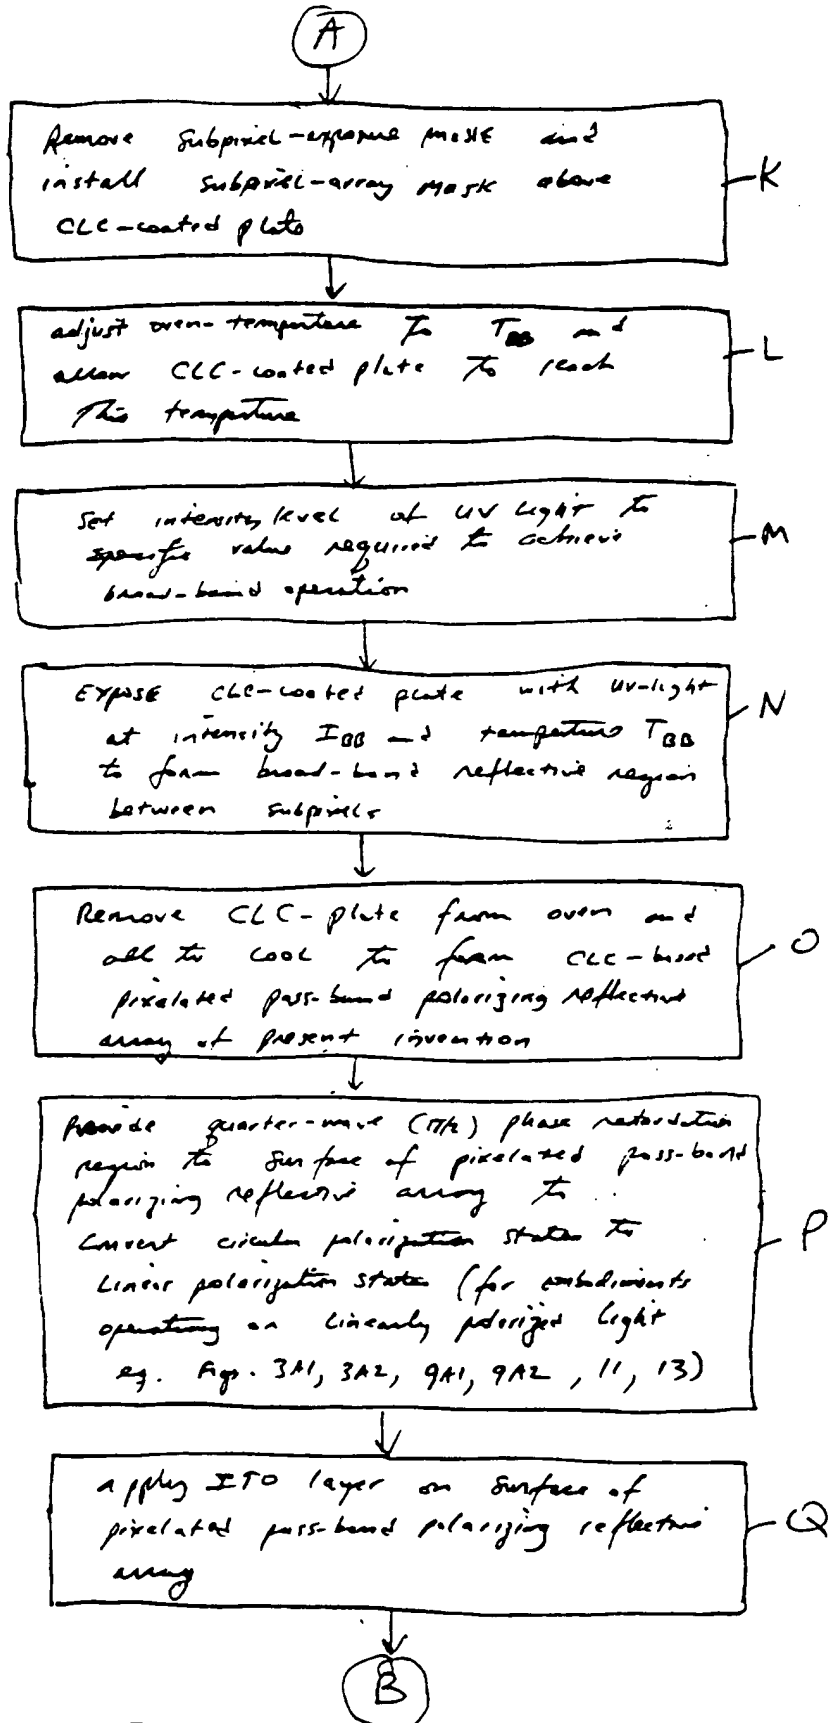 A
Remove Subpixel-exposure mask and
install subpixel-array mask above
CLC-coated plate
K
adjust oven-temperture To TBB and
allow CLC-coated plate To reach
This temperture
L
Set intensity level of UV light to
specific value required to achieve
broad-band operation
M
Expose CLC-coated plate with UV-light
at intensity IBB and temperture TBB
to form broad-band reflective region
between subpixels
N
Remove CLC-plate from oven and
all to cool to form CLC-based
pixelated pass-band polarizing reflective
array of present invention
O
Provide quarter-wave (π/2) phase retardation
region to surface of pixelated pass-band
polarizing reflective array to
Convert circular polarization states to
Linear polarization states (for embodiments
operating on Linearly polarized light
eg. Figs. 3A1, 3A2, 9A1, 9A2, 11, 13)
P
apply ITO layer on surface of
pixelated pass-band polarizing reflective
array
Q
B